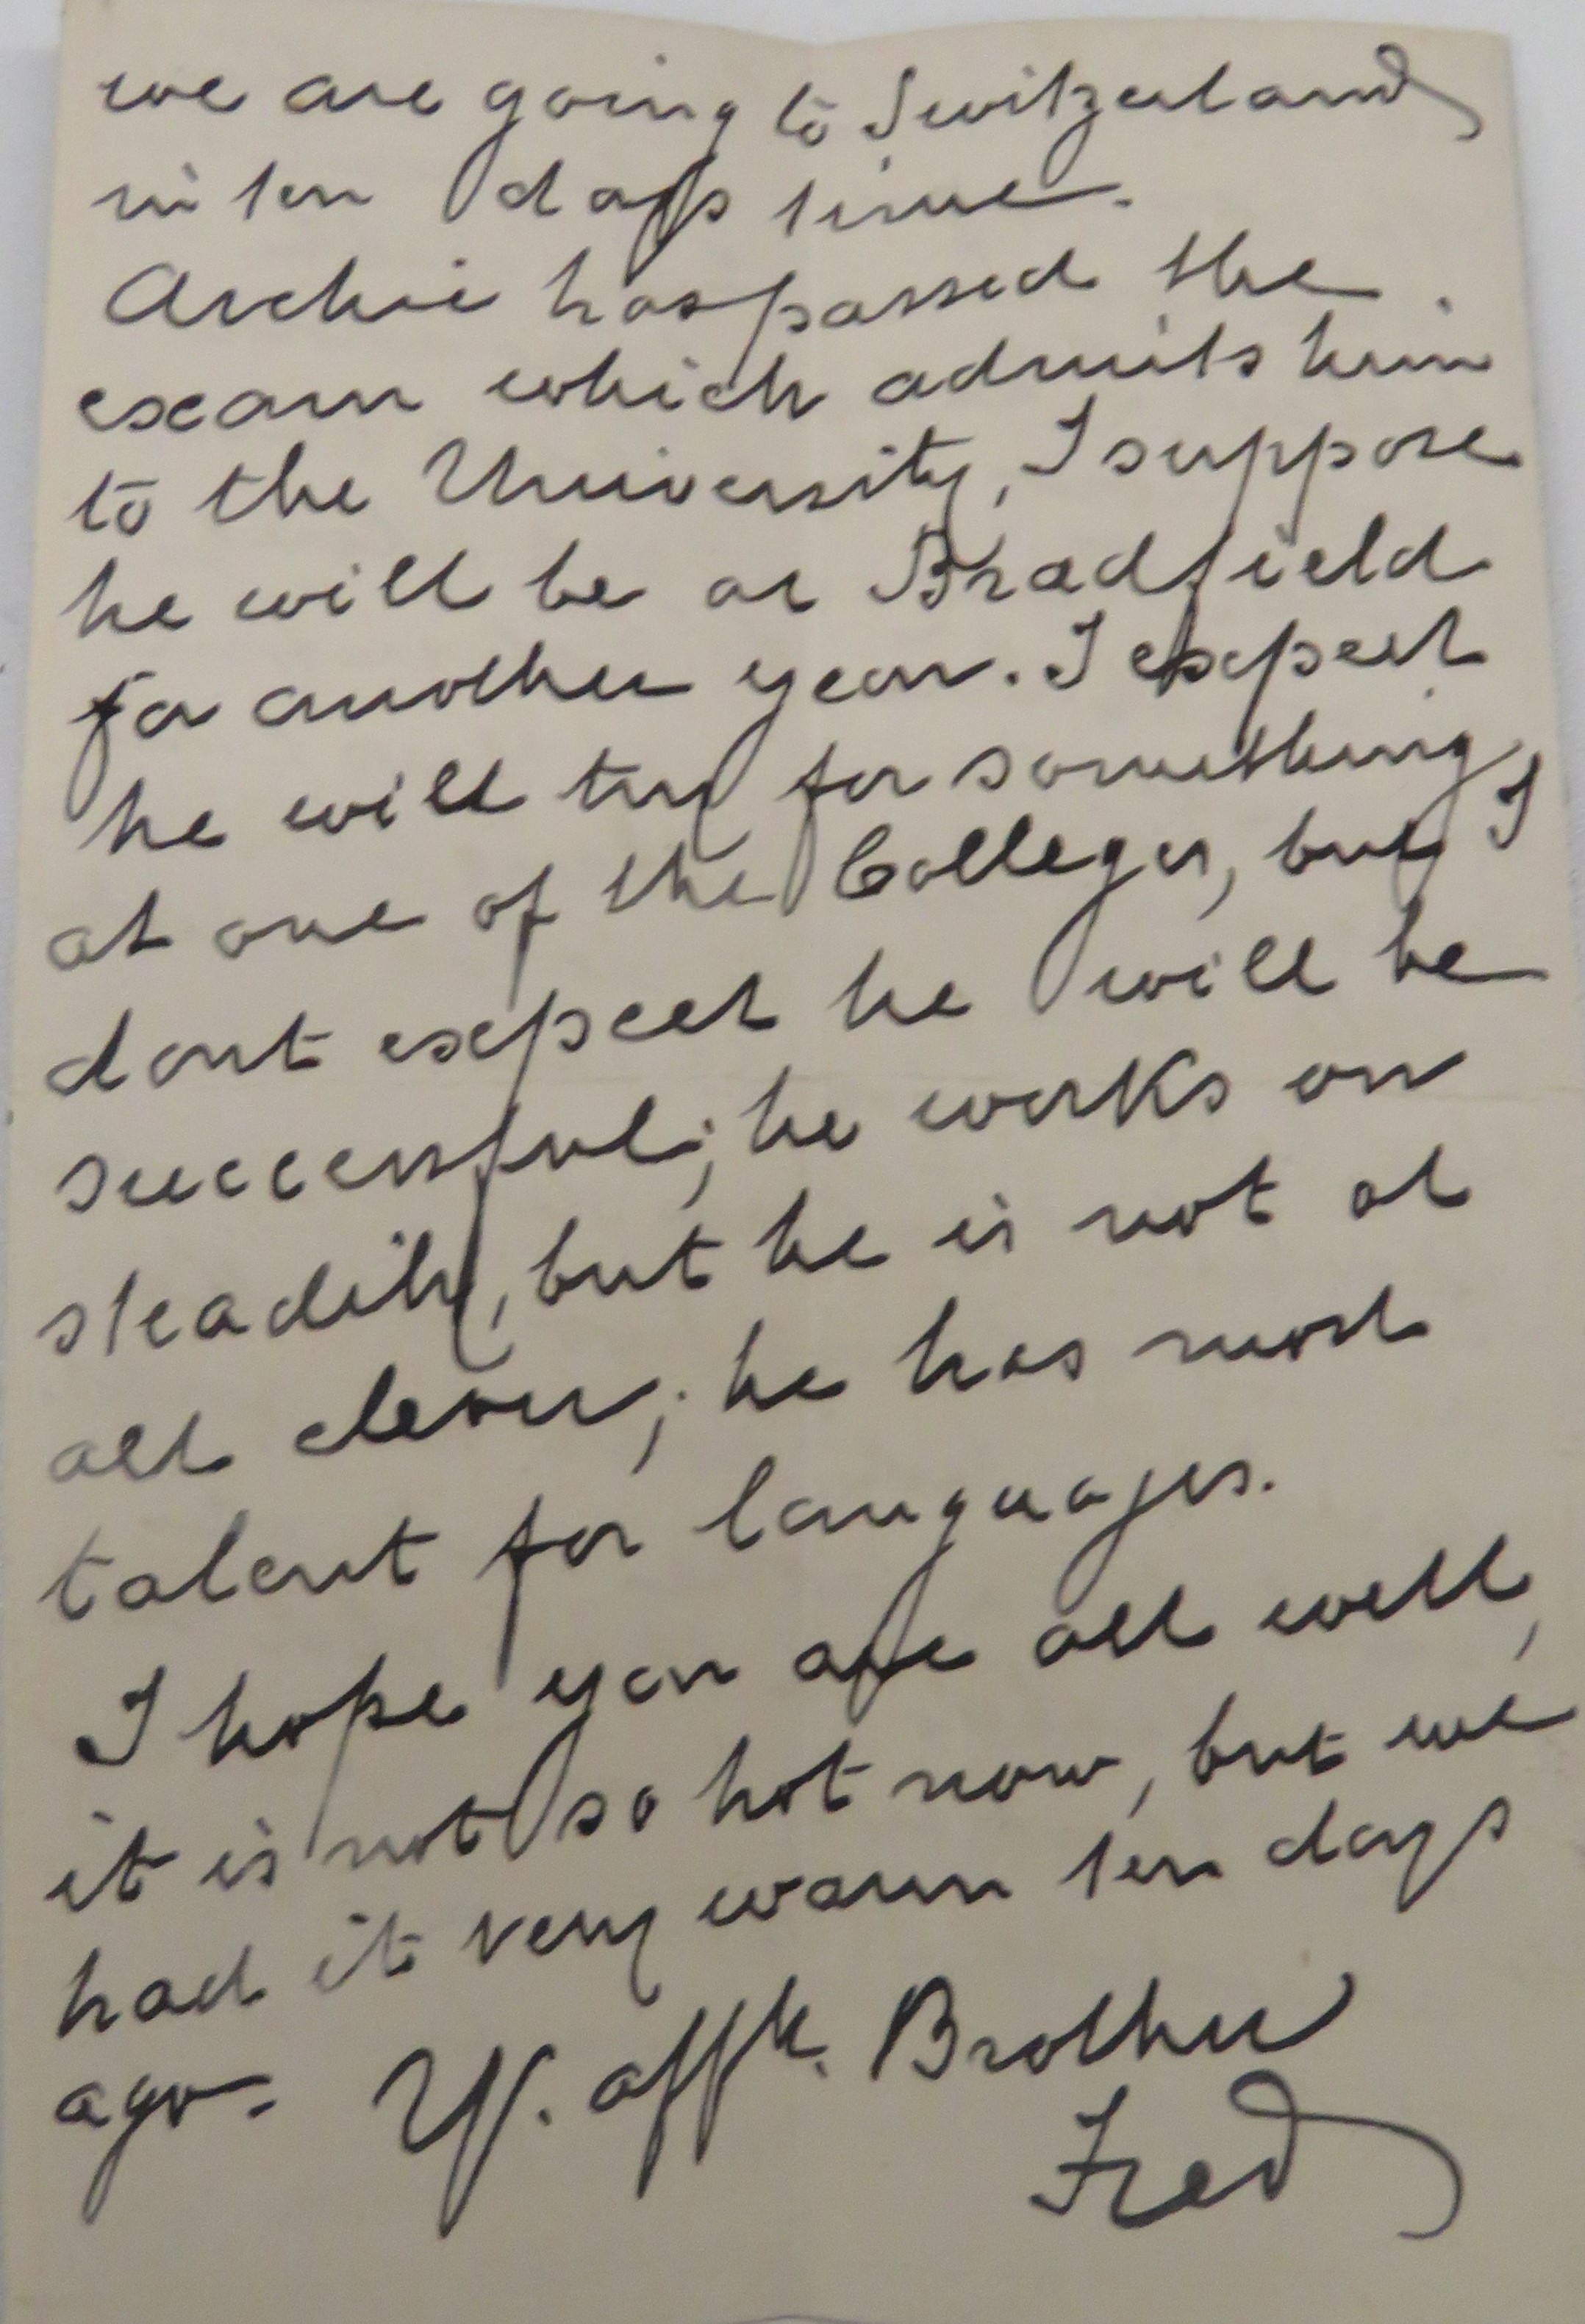 we are going to Switzerland
in ten days time.
Archie has passed the
exam which admits him
to the University, I suppose
he will be at Bradfield
for another year. I expect
he will try for something
at one of the Colleges, but I
dont expect he will be
successful; he works on
steadily, but he is not at
all clever; he has most
talent for languages.
I hope you are all well,
it is not so hot now, but we
had it very warm ten days
ago. Yr. affte. Brother
Fred